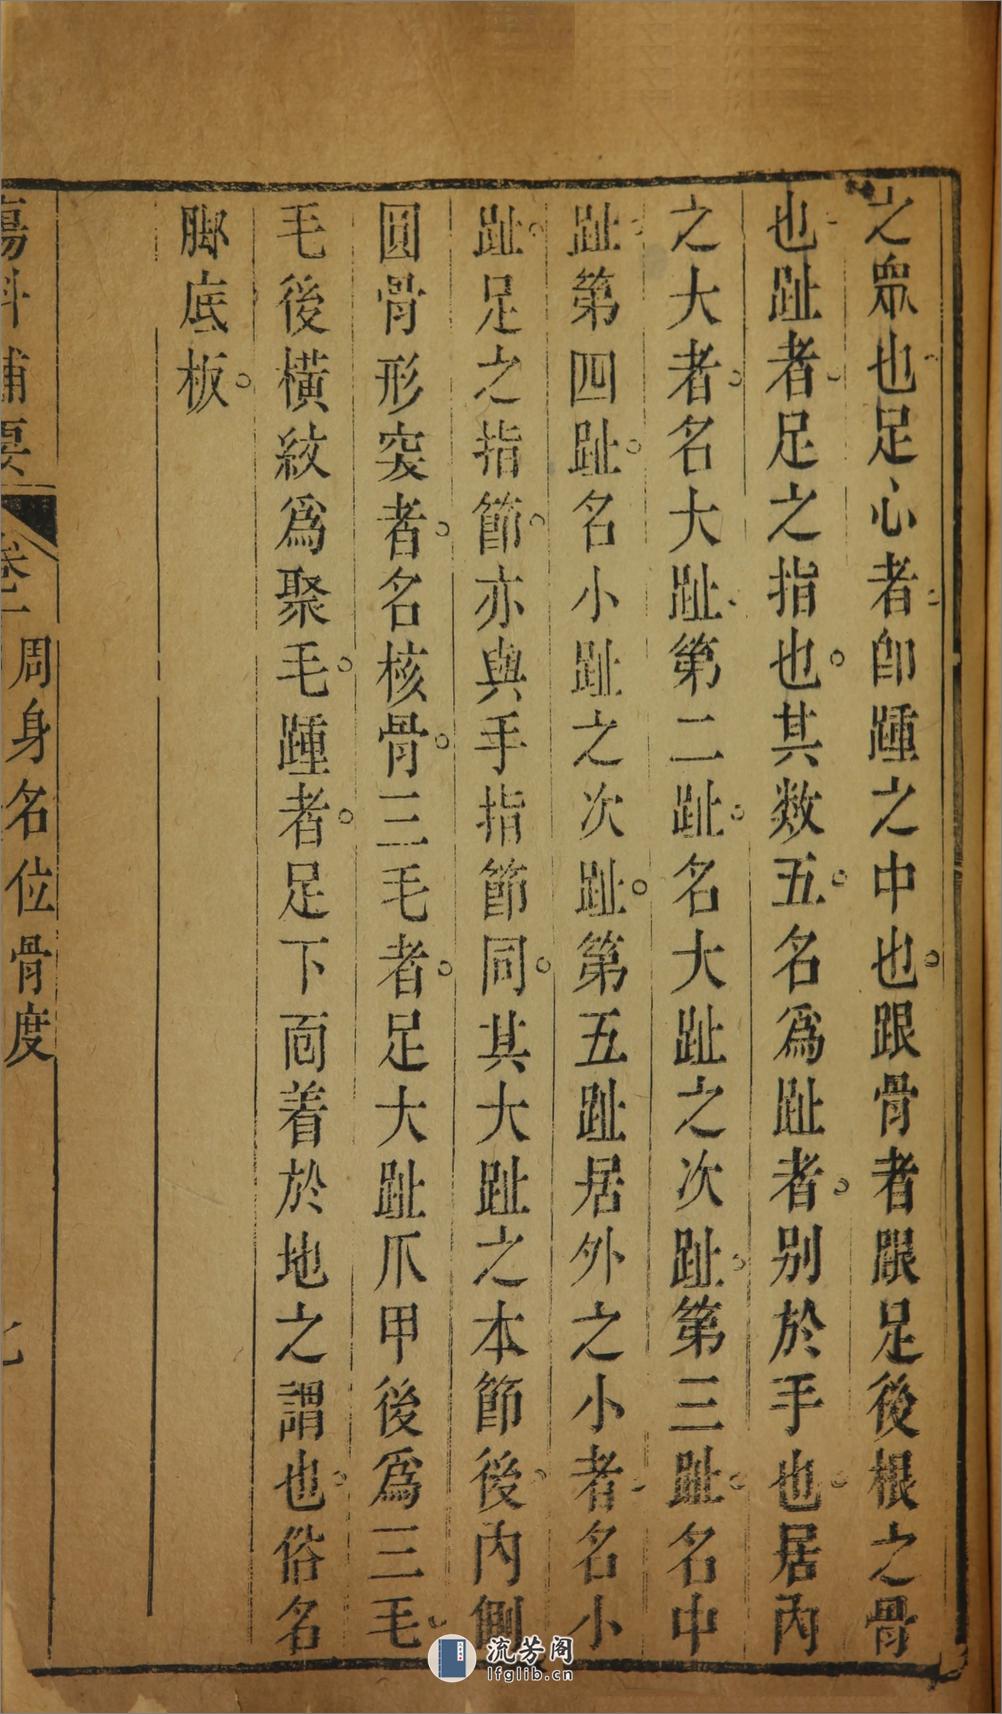 之眾也足心者卽踵之中也跟骨者跟足後根之骨
也趾者足之指也其数五名爲趾者别於手也居內
之大者名大趾第二趾名大趾之次趾第三趾名中
趾第四趾名小趾之次趾第五趾居外之小者名小
趾足之指節亦與手指節同其大趾之本節後內側
圓骨形突者名核骨三毛者足大趾爪甲後爲三毛
毛後橫紋爲聚毛踵者足下面着於地之謂也俗名
脚底板
傷科補要 卷一 周身名位骨度
流芳阁
lfglib.cn